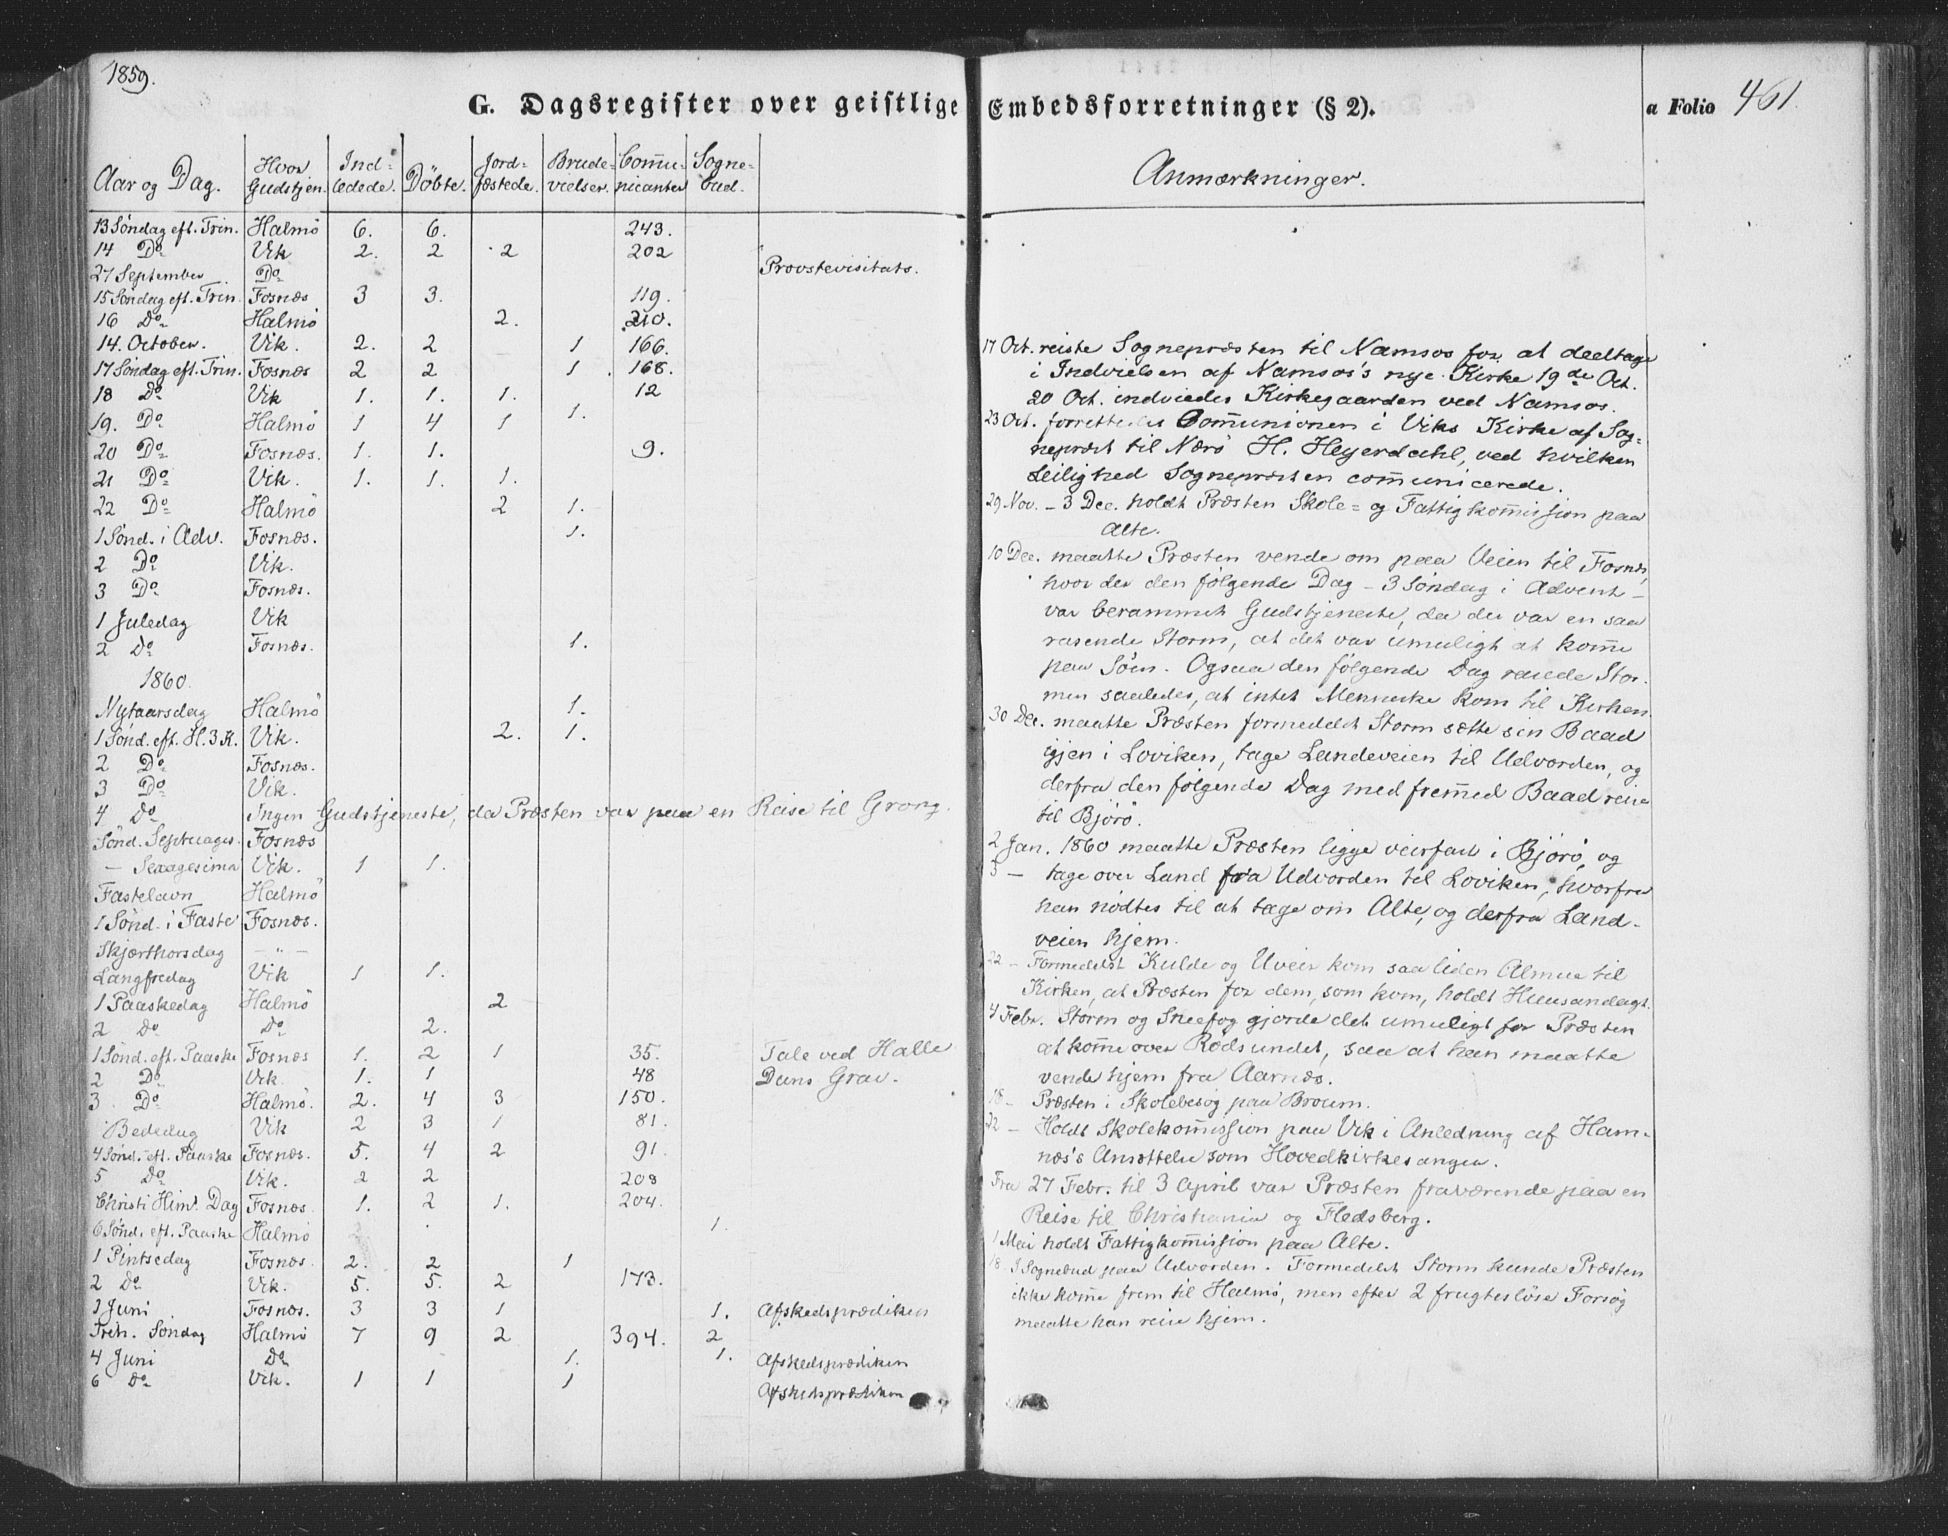 1859.
G. Dagsregister over geistlige Embedsforretninger (§ 2).
a Folio 461.
Aar og Dag. Hvor Gudstjen. Ind=ledede. Döbte. Jord=fæstede. Brude=vielser. Com̅u=nicanter Sogne=bud. Anmærkninger.
13 Söndag eft. Trin. Halmö 6. 6. 243.
14 Do Vik 2. 2 2 202
27 September Do Provstevisitats.
15 Söndag eft. Trin. Fosnæs 3 3. 119.
16 Do Halmö 2. 210.
14. October. Vik. 2. 2 1 166.
17 Söndag eft. Trin. Fosnæs 2 2 1. 168.
18 Do Vik 1. 1. 1. 12
19. Do Halmö 1 4 1 1.
20 Do Fosnæs. 1. 1. 9.
21 Do Vik. 1. 1. 1.
22 Do Halmö 2 1.
1 Sönd. i Adv. Fosnæs. 1.
2 Do Vik.
3 Do Fosnæs.
1 Juledag Vik
2 Do Fosnæs. 1.
1860.
Nytaarsdag Halmö 1.
1 Sönd. eft. H. 3 K. Vik. 2. 1.
2 Do Fosnæs.
3 Do Vik.
4 Do Ingen Gudstjeneste, da Præsten var paa en Reise til Grong.
Sönd. Septuages. Fosnæs
— Sexagesima Vik. 1 1.
Fastelavn Halmö
1 Sönd. i Faste Fosnæs.
Skjærthorsdag — " —
Langfredag Vik 1 1.
1 Paaskedag Halmö 2
2 Do Do 2.
1 Sönd. eft. Paaske Fosnæs 1. 2 1 35. Tale ved Halle
2 Do Vik. 1. 1 48 Duns Grav.
3 Do Halmö. 2. 4 3 150.
Bededag Vik 2 3 1 81.
4 Sönd. eft. Paaske Fosnæs. 5. 4 2 91.
5 Do Vik. 2 2 208
Christi Him. Dag Fosnæs 1. 2 1. 204.
6 Sönd. eft. Paaske Halmö 1.
1 Pintsedag Fosnæs. 2. 2 1
2 Do Vik. 5. 5. 2 173.
3 Juni Fosnæs. 3 3 1 1. Afskedsprædiken
Trin. Söndag Halmö 7 9 2 394. 2
4 Juni Do 1. 1. Afskedsprædiken
6 Do Vik. 1 1 1 Afskedsprædiken
17 Oct. reiste Sognepræsten til Namsos for at deeltage
i Indvielsen af Namsos's nye Kirke 19de Oct.
20 Oct. indviedes Kirkegaarden ved Namsos.
23 Oct. forrettedes Com̅unionen i Viks Kirke af Sog=
nepræst til Nærö H. Heyerdahl, ved hvilken
Leilighed Sognepræsten com̅unicerede.
29 Nov. – 3 Dec. holdt Præsten Skole= og Fattigkom̅ission paa
Alte.
10 Dec. maatte Præsten vende om paa Veien til Fosnæs,
hvor der den fölgende Dag – 3 Söndag i Advent –
var berammet Gudstjeneste, da der var en saa
rasende Storm, at det var umuligt at kom̅e
paa Söen. Ogsaa den fölgende Dag rasede Stor-
men saaledes, at intet Menneske kom til Kirken.
30 Dec. maatte Præsten formedelst Storm sætte sin Baad
igjen i Loviken, tage Landeveien til Udvorden, og
derfra den fölgende Dag med fremmed Baad reise
til Björö.
2 Jan. 1860 maatte Præsten ligge veirfast i Björö, og
3 — tage over Land fra Udvorden til Loviken, hvorfra
han nödtes til at tage om Alte, og derfra Land-
veien hjem.
22 – Formedelst Kulde og Uveir kom saa liden Almue til
Kirken, at Præsten for dem, som kom, holdt Huusandagt.
4 Febr. Storm og Sneefog gjorde det umuligt for Præsten
at kom̅e over Rödsundet, saa at han maatte
vende hjem fra Aarnæs.
18 – Præsten i Skolebesög paa Broum.
22 – Holdt Skolekom̅ission paa Vik i Anledning af Ham-
næs's Ansættelse som Hovedkirkesanger.
Fra 27 Febr. til 3 April var Præsten fraværende paa en
Reise til Christiania og Fledsberg.
1 Mai holdt Fattigkom̅ission paa Alte.
18 I Sognebud paa Udvorden. Formedelst Storm kunde Præsten
ikke kom̅e frem til Halmö, men efter 2 frugteslöse Forsög
maatte han reise hjem.